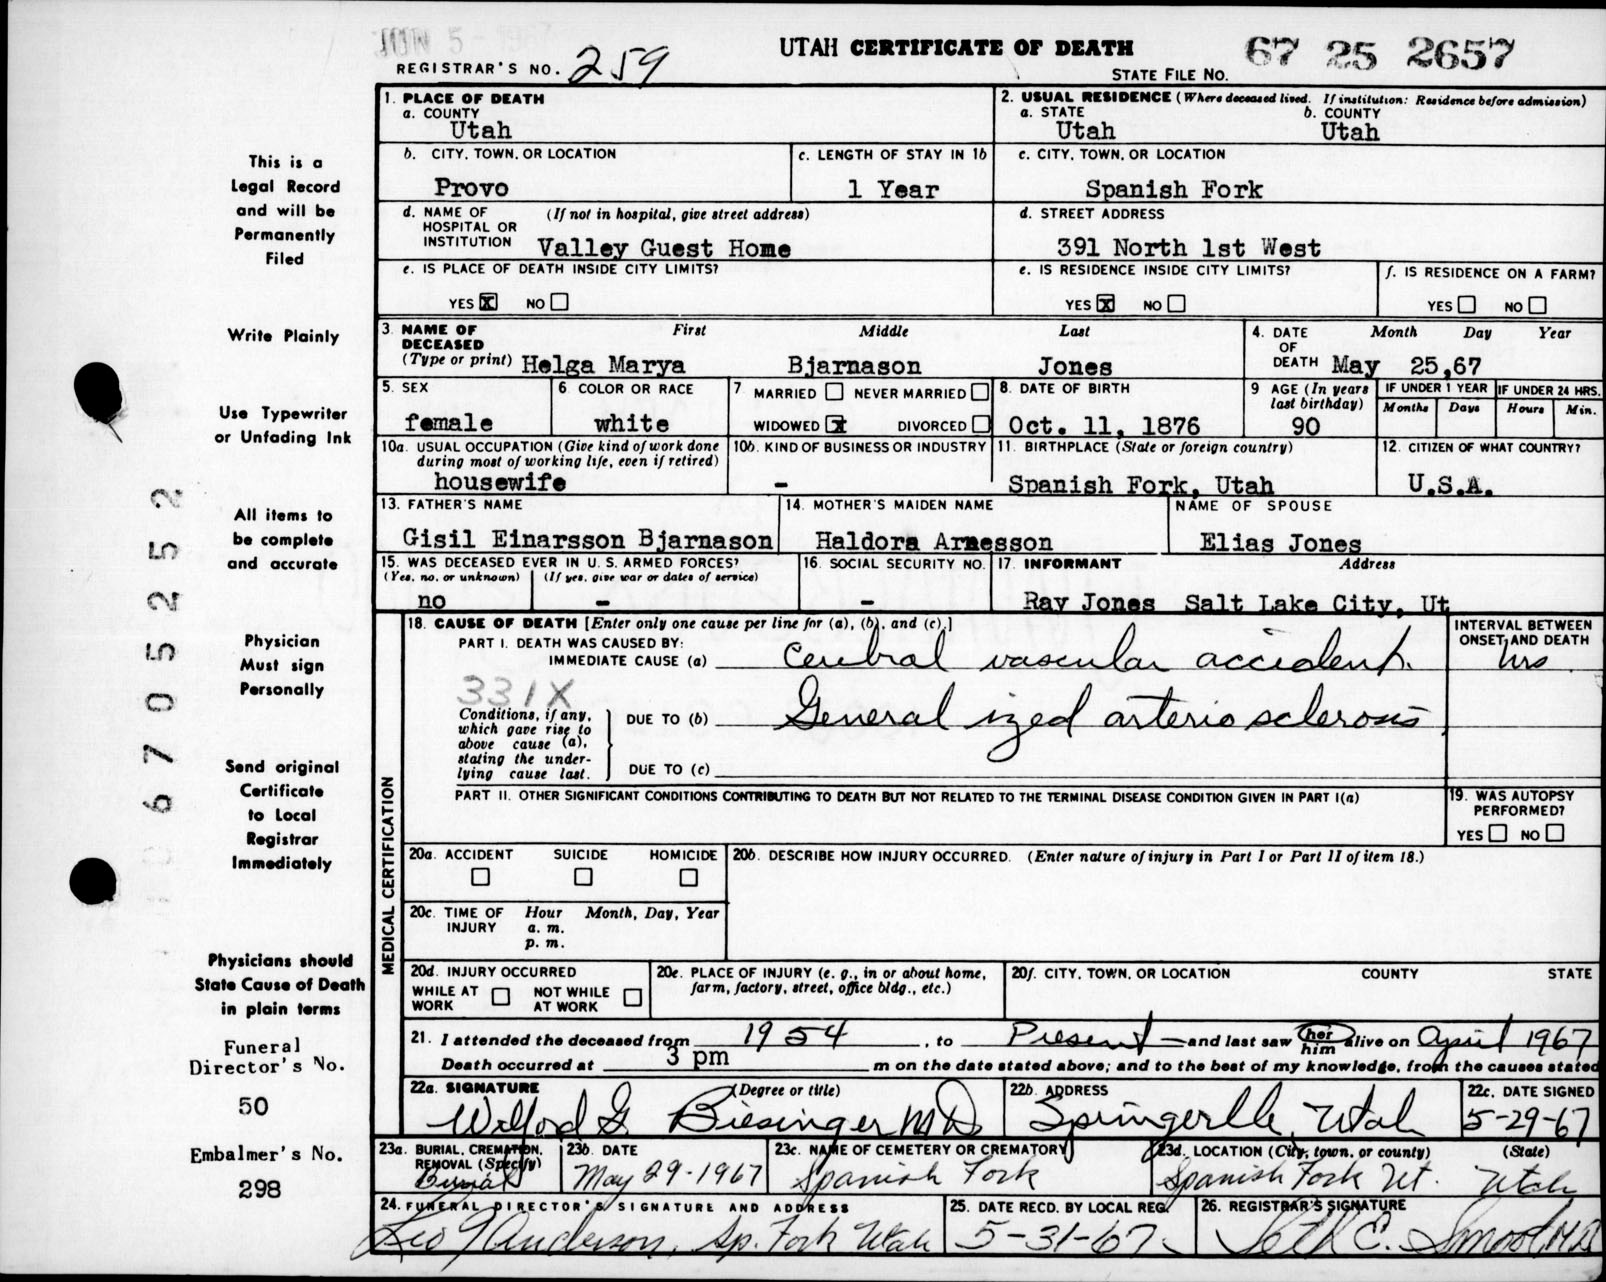 JUN 5 - 1967
UTAH CERTIFICATE OF DEATH
67 25 2657
REGISTRAR'S NO. 259
STATE FILE NO.
1. PLACE OF DEATH
a. COUNTY
Utah
2. USUAL RESIDENCE (Where deceased lived. If institution: Residence before admission)
a. STATE
Utah
b. COUNTY
Utah
b. CITY, TOWN, OR LOCATION
Provo
c. LENGTH OF STAY IN 1b
1 Year
c. CITY, TOWN, OR LOCATION
Spanish Fork
d. NAME OF HOSPITAL OR INSTITUTION (If not in hospital, give street address)
Valley Guest Home
d. STREET ADDRESS
391 North 1st West
e. IS PLACE OF DEATH INSIDE CITY LIMITS?
YES X NO
e. IS RESIDENCE INSIDE CITY LIMITS?
YES X NO
f. IS RESIDENCE ON A FARM?
YES NO
3. NAME OF DECEASED (Type or print)
First Middle Last
Helga Marya Bjarnason Jones
4. DATE OF DEATH
Month Day Year
May 25,67
5. SEX
female
6. COLOR OR RACE
white
7. MARRIED NEVER MARRIED
WIDOWED X DIVORCED
8. DATE OF BIRTH
Oct. 11, 1876
9 AGE (In years last birthday)
90
IF UNDER 1 YEAR
Months Days
IF UNDER 24 HRS.
Hours Min.
10a. USUAL OCCUPATION (Give kind of work done during most of working life, even if retired)
housewife
10b. KIND OF BUSINESS OR INDUSTRY
-
11. BIRTHPLACE (State or foreign country)
Spanish Fork, Utah
12. CITIZEN OF WHAT COUNTRY?
U.S.A.
13. FATHER'S NAME
Gisil Einarsson Bjarnason
14. MOTHER'S MAIDEN NAME
Haldora Arnesson
NAME OF SPOUSE
Elias Jones
15. WAS DECEASED EVER IN U. S. ARMED FORCES?
(Yes, no, or unknown) (If yes, give war or dates of service)
no -
16. SOCIAL SECURITY NO.
-
17. INFORMANT Address
Ray Jones Salt Lake City, Ut
MEDICAL CERTIFICATION
18. CAUSE OF DEATH [Enter only one cause per line for (a), (b), and (c).]
INTERVAL BETWEEN ONSET AND DEATH
PART I. DEATH WAS CAUSED BY:
IMMEDIATE CAUSE (a) Cerebral vascular accident. hrs
331X
Conditions, if any, which gave rise to above cause (a), stating the underlying cause last.
DUE TO (b) Generalized arteriosclerosis
DUE TO (c)
PART II. OTHER SIGNIFICANT CONDITIONS CONTRIBUTING TO DEATH BUT NOT RELATED TO THE TERMINAL DISEASE CONDITION GIVEN IN PART I(a)
19. WAS AUTOPSY PERFORMED?
YES NO
20a. ACCIDENT SUICIDE HOMICIDE
20b. DESCRIBE HOW INJURY OCCURRED. (Enter nature of injury in Part I or Part II of item 18.)
20c. TIME OF INJURY Hour Month, Day, Year
a. m.
p. m.
20d. INJURY OCCURRED
WHILE AT WORK NOT WHILE AT WORK
20e. PLACE OF INJURY (e. g., in or about home, farm, factory, street, office bldg., etc.)
20f. CITY, TOWN, OR LOCATION COUNTY STATE
21. I attended the deceased from 1954, to Present and last saw her him alive on April 1967
Death occurred at 3 pm m on the date stated above; and to the best of my knowledge, from the causes stated
22a. SIGNATURE (Degree or title)
Walford G Biesinger MD
22b. ADDRESS
Springville, Utah
22c. DATE SIGNED
5-29-67
23a. BURIAL, CREMATION, REMOVAL (Specify)
Burial
23b. DATE
May 29-1967
23c. NAME OF CEMETERY OR CREMATORY
Spanish Fork
23d. LOCATION (City, town, or county) (State)
Spanish Fork Ut. Utah
24. FUNERAL DIRECTOR'S SIGNATURE AND ADDRESS
Anderson, Sp. Fork Utah
25. DATE RECD. BY LOCAL REG.
5-31-67
26. REGISTRAR'S SIGNATURE
Seth E. Smoot, M.D.
This is a
Legal Record
and will be
Permanently
Filed
Write Plainly
Use Typewriter
or Unfading Ink
All items to
be complete
and accurate
Physician
Must sign
Personally
Send original
Certificate
to Local
Registrar
Immediately
Physicians should
State Cause of Death
in plain terms
Funeral
Director's No.
50
Embalmer's No.
298
67052252